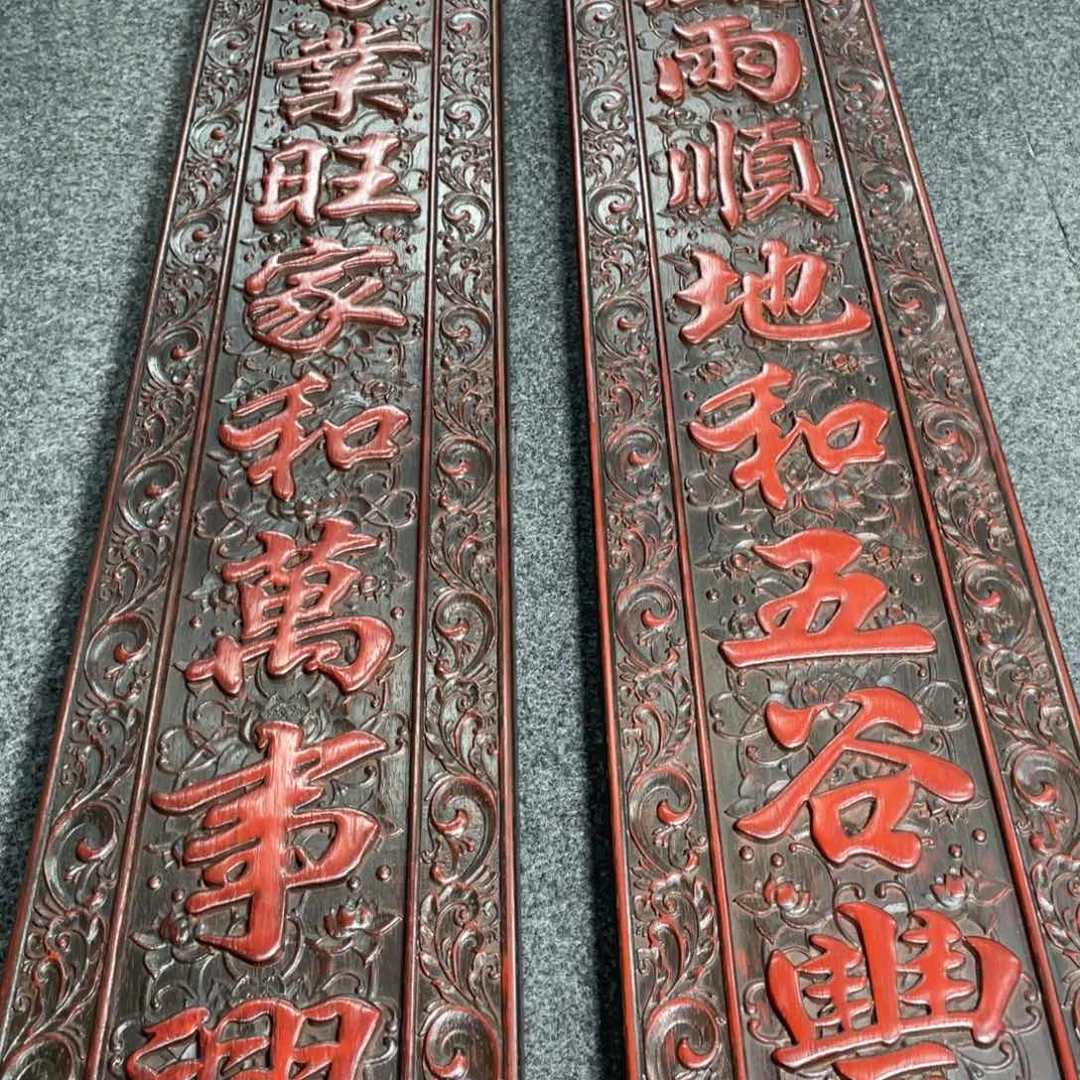 雨順地和五谷豐
業旺家和萬事興